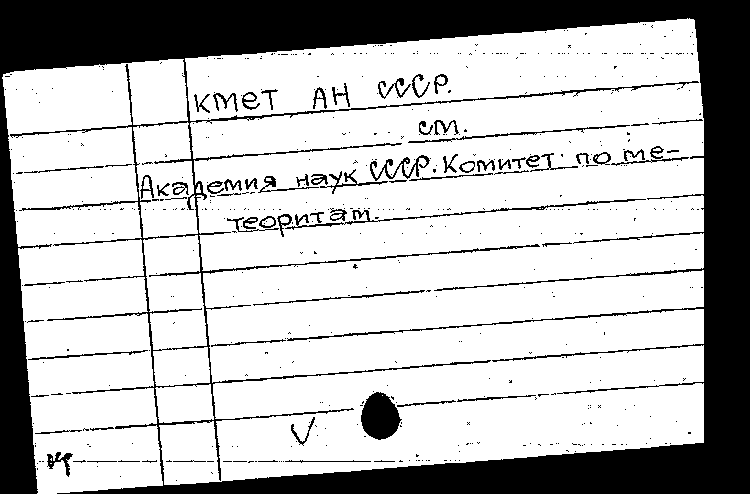 КМЕТ АН СССР.
см.
Академия наук СССР. Комитет по ме-
теоритам.
V